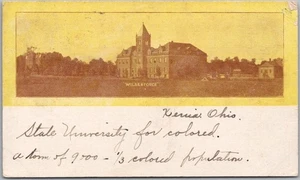 "WILBERFORCE"
Xenia Ohio.
State University for colored.
a town of 900 — 1/3 colored population.